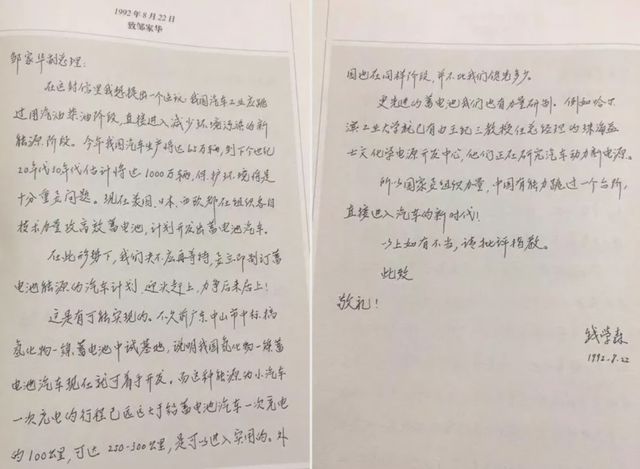 1992年8月22日
致邹家华
邹家华副总理：
在这封信里我想提出一个建议：我国汽车工业应跳
过用汽油柴油阶段，直接进入减少环境污染的新
能源阶段。今年我国汽车生产将达65万辆，到下个世纪
20年代30年代估计将达1000万辆，保护环境将是
十分重要问题。现在美国、日本、西欧都在组织各自
技术力量攻高效蓄电池，计划开发出蓄电池汽车。
在此形势下，我们决不应再等待，要立即制订蓄
电池能源的汽车计划，迎头赶上，力争后来居上！
这是有可能实现的。不久前广东中山市中标，搞
氢化物—镍蓄电池中试基地，说明我国氢化物—镍蓄
电池汽车现在就可着手开发。而这种能源为小汽车
一次充电的行程已远远大于铅蓄电池汽车一次充电
的100公里，可达250-300公里，是可以进入实用的。外
国也在同样阶段，并不比我们领先多少。
更先进的蓄电池我们也有力量研制。例如哈尔
滨工业大学就已有由王纪三教授任总经理的珠海益
士文化学电源开发中心，他们正在研究汽车动力新电源。
所以国家要组织力量，中国有能力跳过一个台阶，
直接进入汽车的新时代！
以上如有不当，请批评指教。
此致
敬礼！
钱学森
1992.8.22